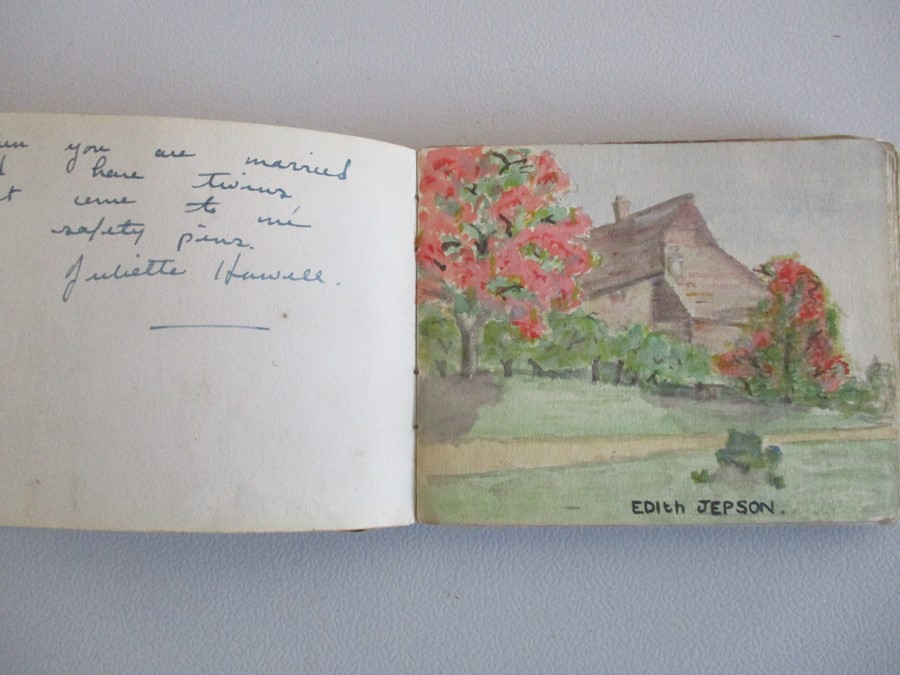 you are married
have twins
come to me
safety pins.
Juliette Howell.
EDITH JEPSON.